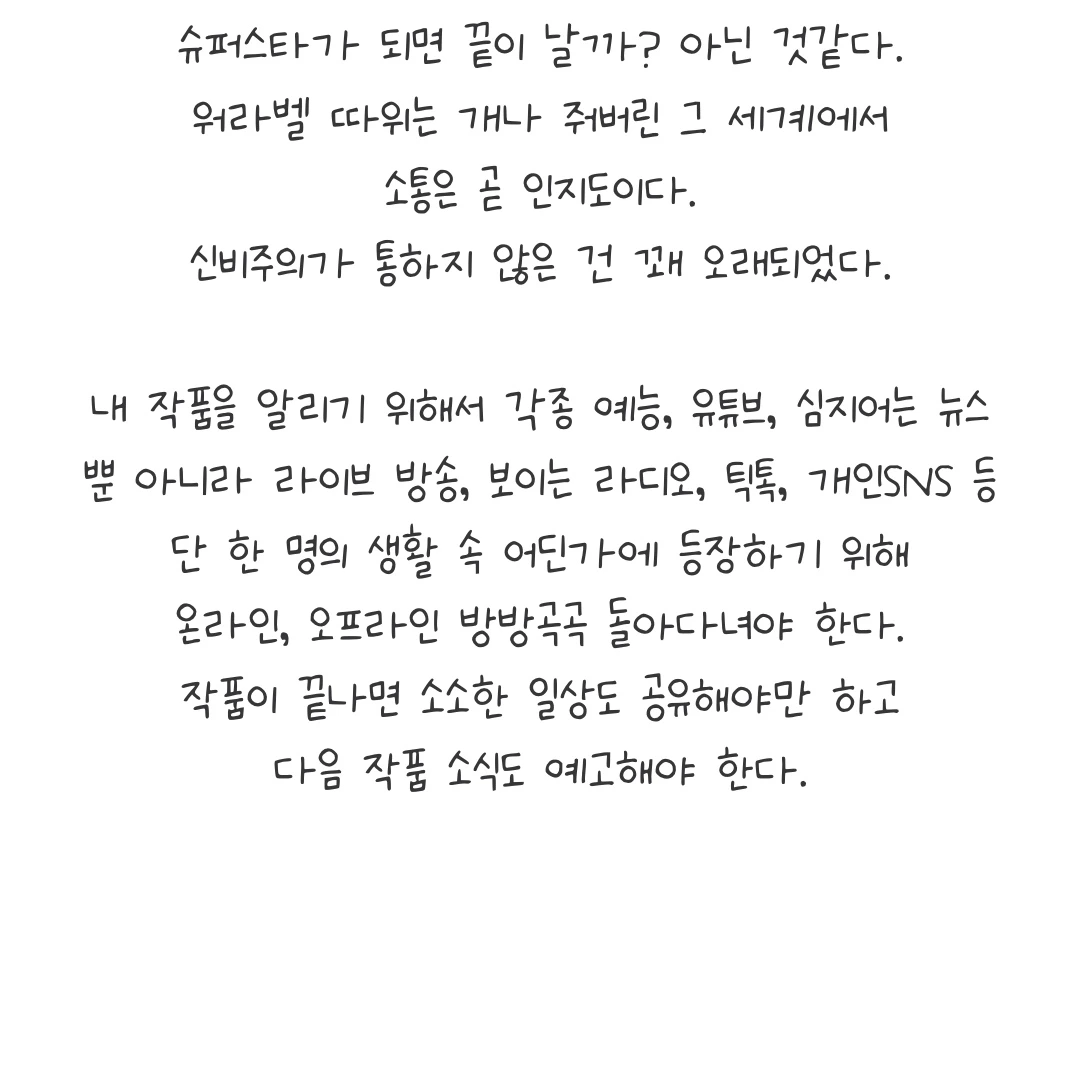 슈퍼스타가 되면 끝이 날까? 아닌 것같다.
워라벨 따위는 개나 줘버린 그 세계에서
소통은 곧 인지도이다.
신비주의가 통하지 않은 건 꽤 오래되었다.
내 작품을 알리기 위해서 각종 예능, 유튜브, 심지어는 뉴스
뿐 아니라 라이브 방송, 보이는 라디오, 틱톡, 개인SNS 등
단 한 명의 생활 속 어딘가에 등장하기 위해
온라인, 오프라인 방방곡곡 돌아다녀야 한다.
작품이 끝나면 소소한 일상도 공유해야만 하고
다음 작품 소식도 예고해야 한다.